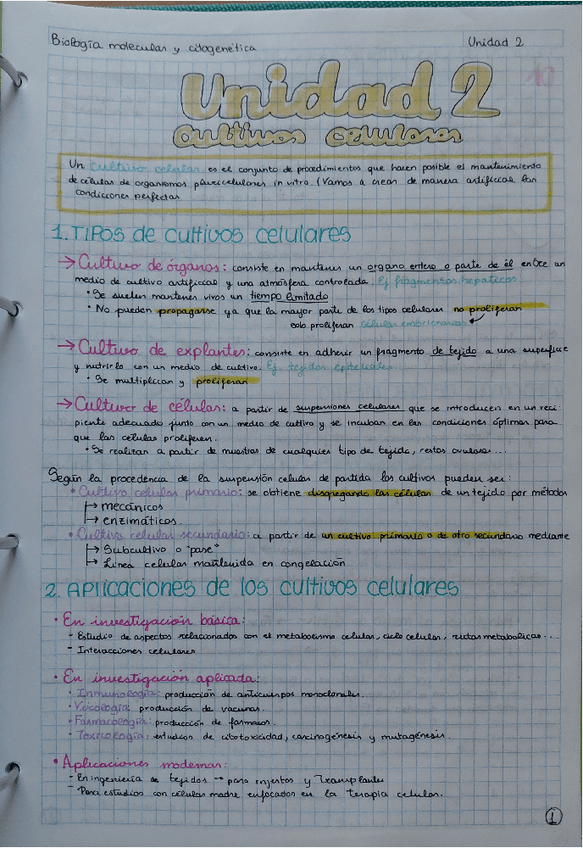 Biología molecular y citogenética
Unidad 2
Unidad 2
Cultivos celulares
Un cultivo celular es el conjunto de procedimientos que hacen posible el mantenimiento
de células de organismos pluricelulares in vitro. (Vamos a crear de manera artificial las
condiciones perfectas
1. Tipos de cultivos celulares
→ Cultivo de órganos: consiste en mantener un organo entero o parte de él entre un
medio de cultivo artificial y una atmósfera controlada. Ej fragmentos hepaticos
• Se suelen mantener vivos un tiempo limitado
• No pueden propagarse ya que la mayor parte de los tipos celulares no proliferan
solo proliferan células embrionarias
→ Cultivo de explantes: consiste en adherir un fragmento de tejido a una superficie
y nutrirlo con un medio de cultivo. Ej tejidos epiteliales
• Se multiplican y proliferan
→ Cultivo de células: a partir de suspensiones celulares que se introducen en un reci
piente adecuado junto con un medio de cultivo y se incuban en las condiciones óptimas para
que las celulas proliferen.
• Se realizan a partir de muestras de cualquier tipo de tejido, restos ovulares...
Según la procedencia de la suspensión celular de partida los cultivos pueden ser:
• Cultivo celular primario: se obtiene disgregando las células de un tejido por métodos
→ mecánicos
→ enzimáticos
• Cultivo celular secundario: a partir de un cultivo primario o de otro secundario mediante
→ Subcultivo o "pase"
→ Linea celular mantenida en congelación
2. Aplicaciones de los cultivos celulares
• En investigación básica:
- Estudio de aspectos relacionados con el metabolismo celular, ciclo celular, rutas metabolicas...
- Interacciones celulares
• En investigación aplicada:
• Inmunología: producción de anticuerpos monoclonales.
• Virología: producción de vacunas.
• Farmacología: producción de farmacos.
• Toxicología: estudios de citotoxicidad, carcinogénesis y mutagénesis.
• Aplicaciones modernas:
- En ingeniería de tejidos → para injertos y Transplantes
- Para estudios con células madre enfocados en la terapia celular.
1